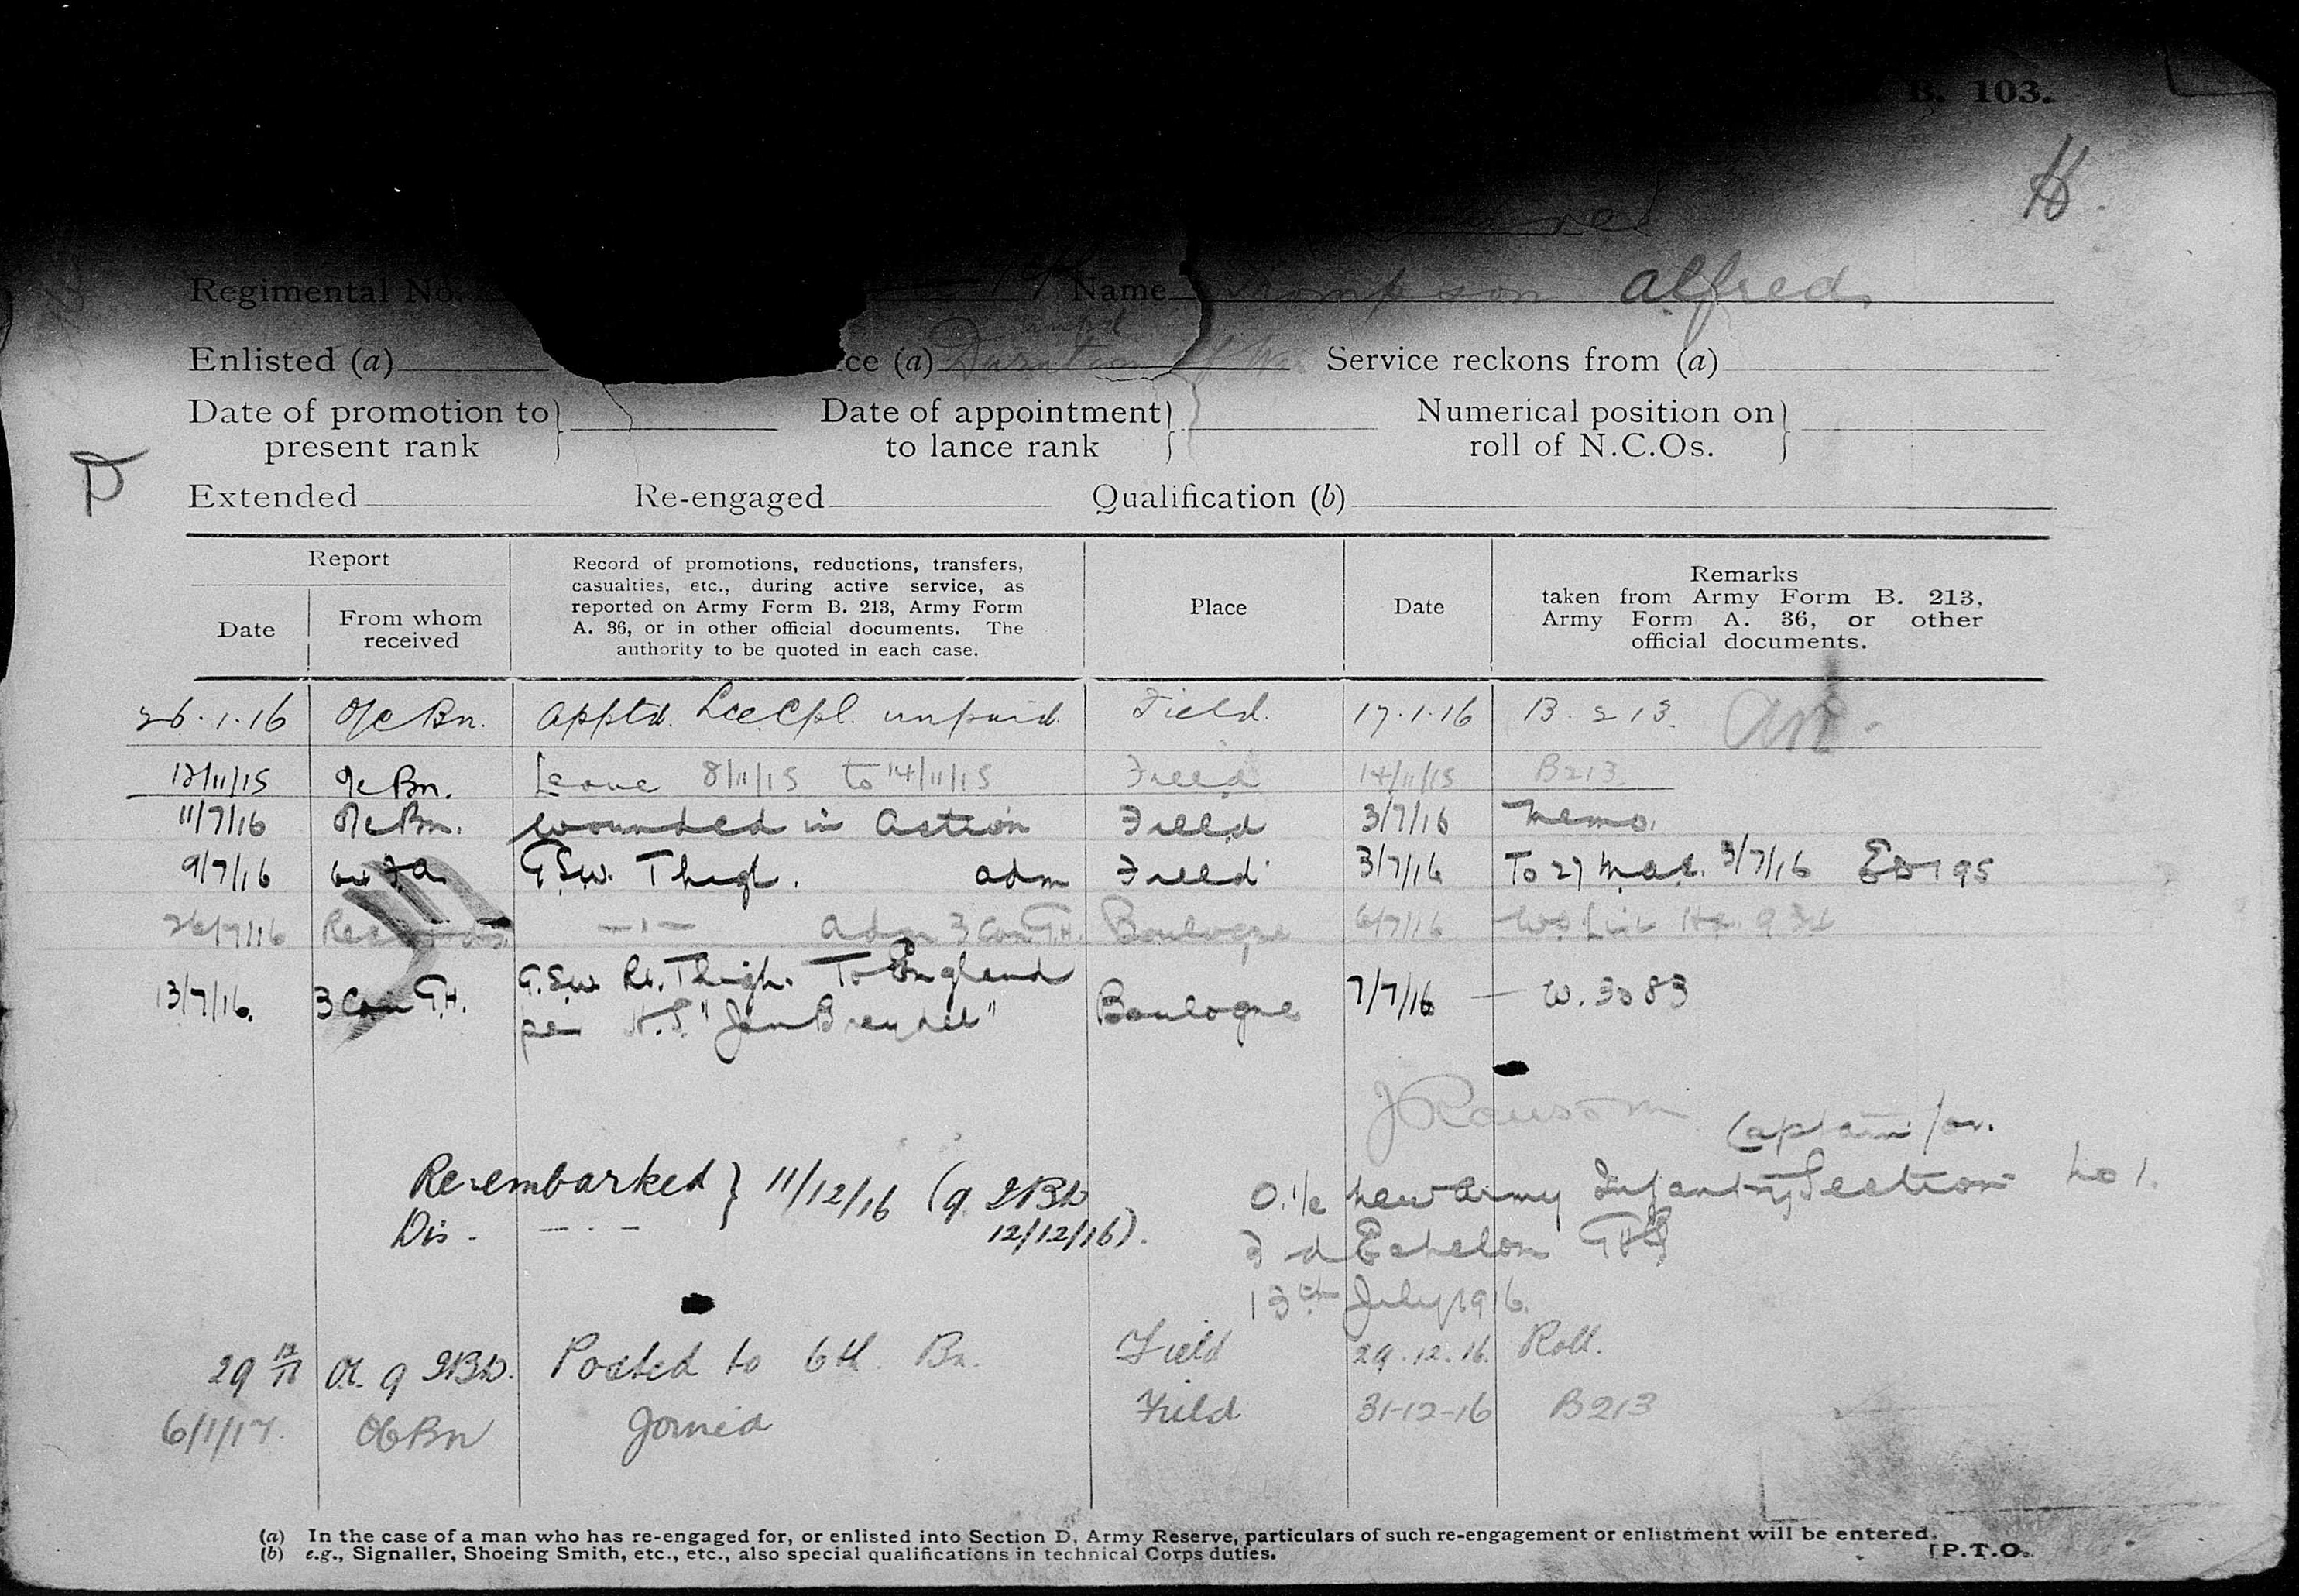 B. 103.
H.
Regimental No. Name Thompson Alfred
Enlisted (a) ce (a) Duration of War Service reckons from (a)
Date of promotion to present rank Date of appointment to lance rank Numerical position on roll of N.C.Os.
P
Extended Re-engaged Qualification (b)
Report
Date
From whom received
Record of promotions, reductions, transfers,
casualties, etc., during active service, as
reported on Army Form B. 213, Army Form
A. 36, or in other official documents. The
authority to be quoted in each case.
Place
Date
Remarks
taken from Army Form B. 213,
Army Form A. 36, or other
official documents.
26.1.16 O/c Bn. Apptd. Lce Cpl. unpaid. Field. 17.1.16 B. 213.
12/11/15 O/c Bn. Leave 8/11/15 to 14/11/15 Field 14/11/15 B213.
11/7/16 O/c Bn. Wounded in Action Field 3/7/16 Memo.
9/7/16 F.A. G.S.W. Thigh. adm Field 3/7/16 To 27 3/7/16 ED 795
26/7/16 Records —"— adm 3 Can G.H. Boulogne 6/7/16
13/7/16. 3 Can G.H. G.S.W. Rt. Thigh. To England
per H.S. "Jan Breydel" Boulogne 7/7/16 — W. 3083
J Ransom Captain for.
O. i/c New Army Infantry Section No 1.
3rd Echelon GHQ
13th July 1916.
Re-embarked } 11/12/16 (9 IBD
Dis - — " — 12/12/16).
29 12/16 OC. 9 IBD. Posted to 6th. Bn. Field 29.12.16. Roll.
6/1/17. OC Bn Joined Field 31-12-16 B213
(a) In the case of a man who has re-engaged for, or enlisted into Section D, Army Reserve, particulars of such re-engagement or enlistment will be entered.
(b) e.g., Signaller, Shoeing Smith, etc., etc., also special qualifications in technical Corps duties.
[P.T.O.